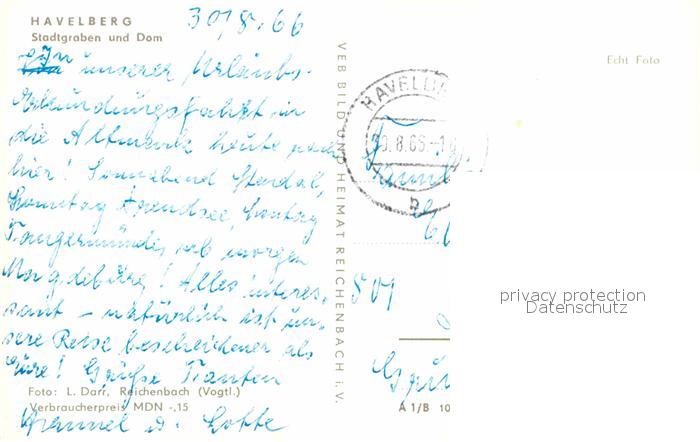 HAVELBERG
Stadtgraben und Dom
30/8.66
In unserer Urlaubs-
erkundungsfahrt in
die Altmark heute nach
hier! Sonnabend Stendal,
Sonntag Arendsee, Montag
Tangermünde, und morgen
Magdeburg! Alles interes-
sant - natürlich ist un-
sere Reise bescheidener als
Eure! Grüße Tanten
u. Lotte
Foto: L. Darr, Reichenbach (Vogtl.)
Verbraucherpreis MDN -,15
VEB BILD UND HEIMAT REICHENBACH i. V.
Echt Foto
HAVELB
30.8.66-1
b
801
A 1/B 10
privacy protection
Datenschutz